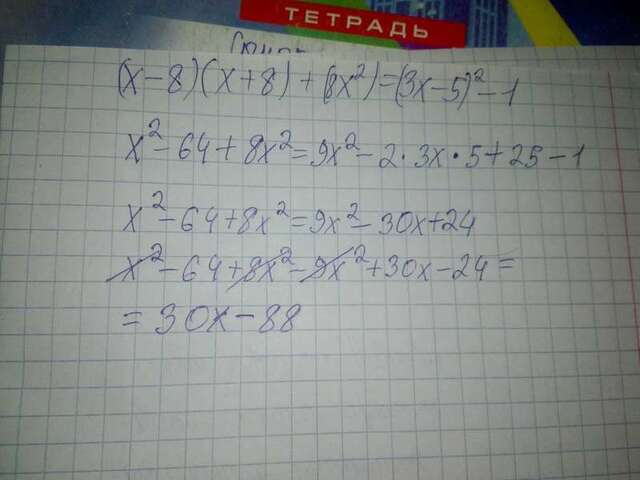 ТЕТРАДЬ
(x-8)(x+8)+(8x²)=(3x-5)²-1
x²-64+8x²=9x²-2·3x·5+25-1
x²-64+8x²=9x²-30x+24
x²-64+8x²-9x²+30x-24=
=30x-88